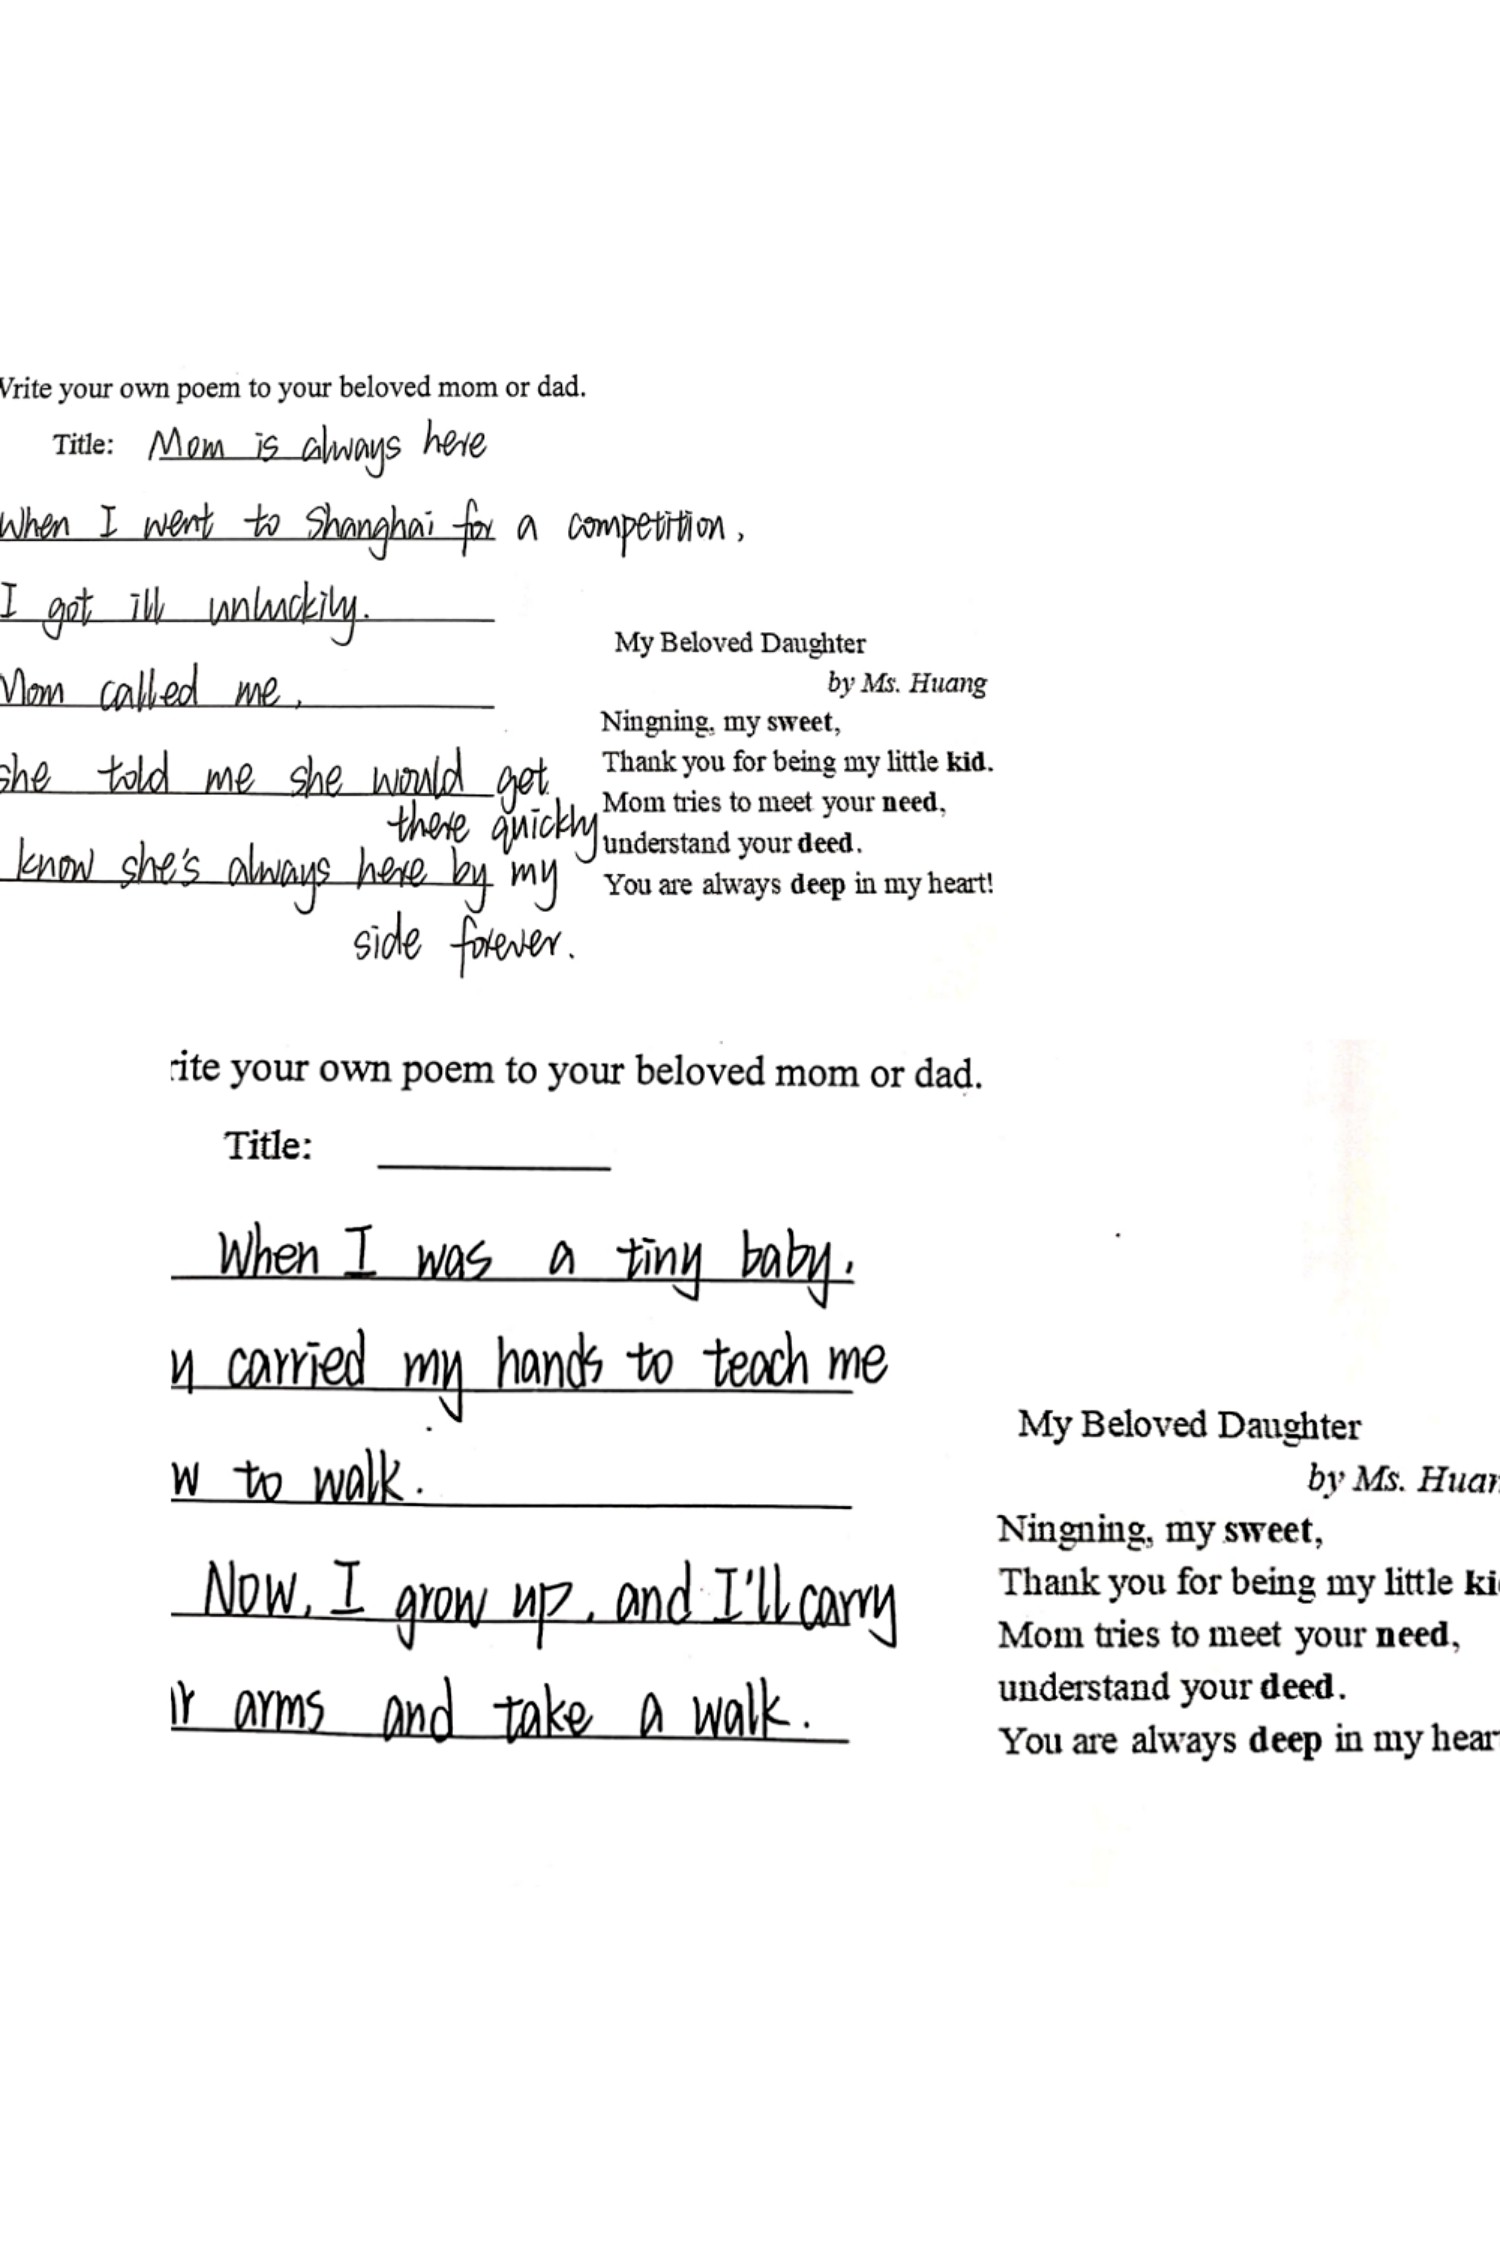 Write your own poem to your beloved mom or dad.
Title: Mom is always here
When I went to Shanghai for a competition,
I got ill unluckily.
Mom called me,
she told me she would get
there quickly
know she's always here by my
side forever.
My Beloved Daughter
by Ms. Huang
Ningning, my sweet,
Thank you for being my little kid.
Mom tries to meet your need,
understand your deed.
You are always deep in my heart!
rite your own poem to your beloved mom or dad.
Title:
When I was a tiny baby,
carried my hands to teach me
w to walk.
Now, I grow up, and I'll carry
ir arms and take a walk.
My Beloved Daughter
by Ms. Huan
Ningning, my sweet,
Thank you for being my little ki
Mom tries to meet your need,
understand your deed.
You are always deep in my hear